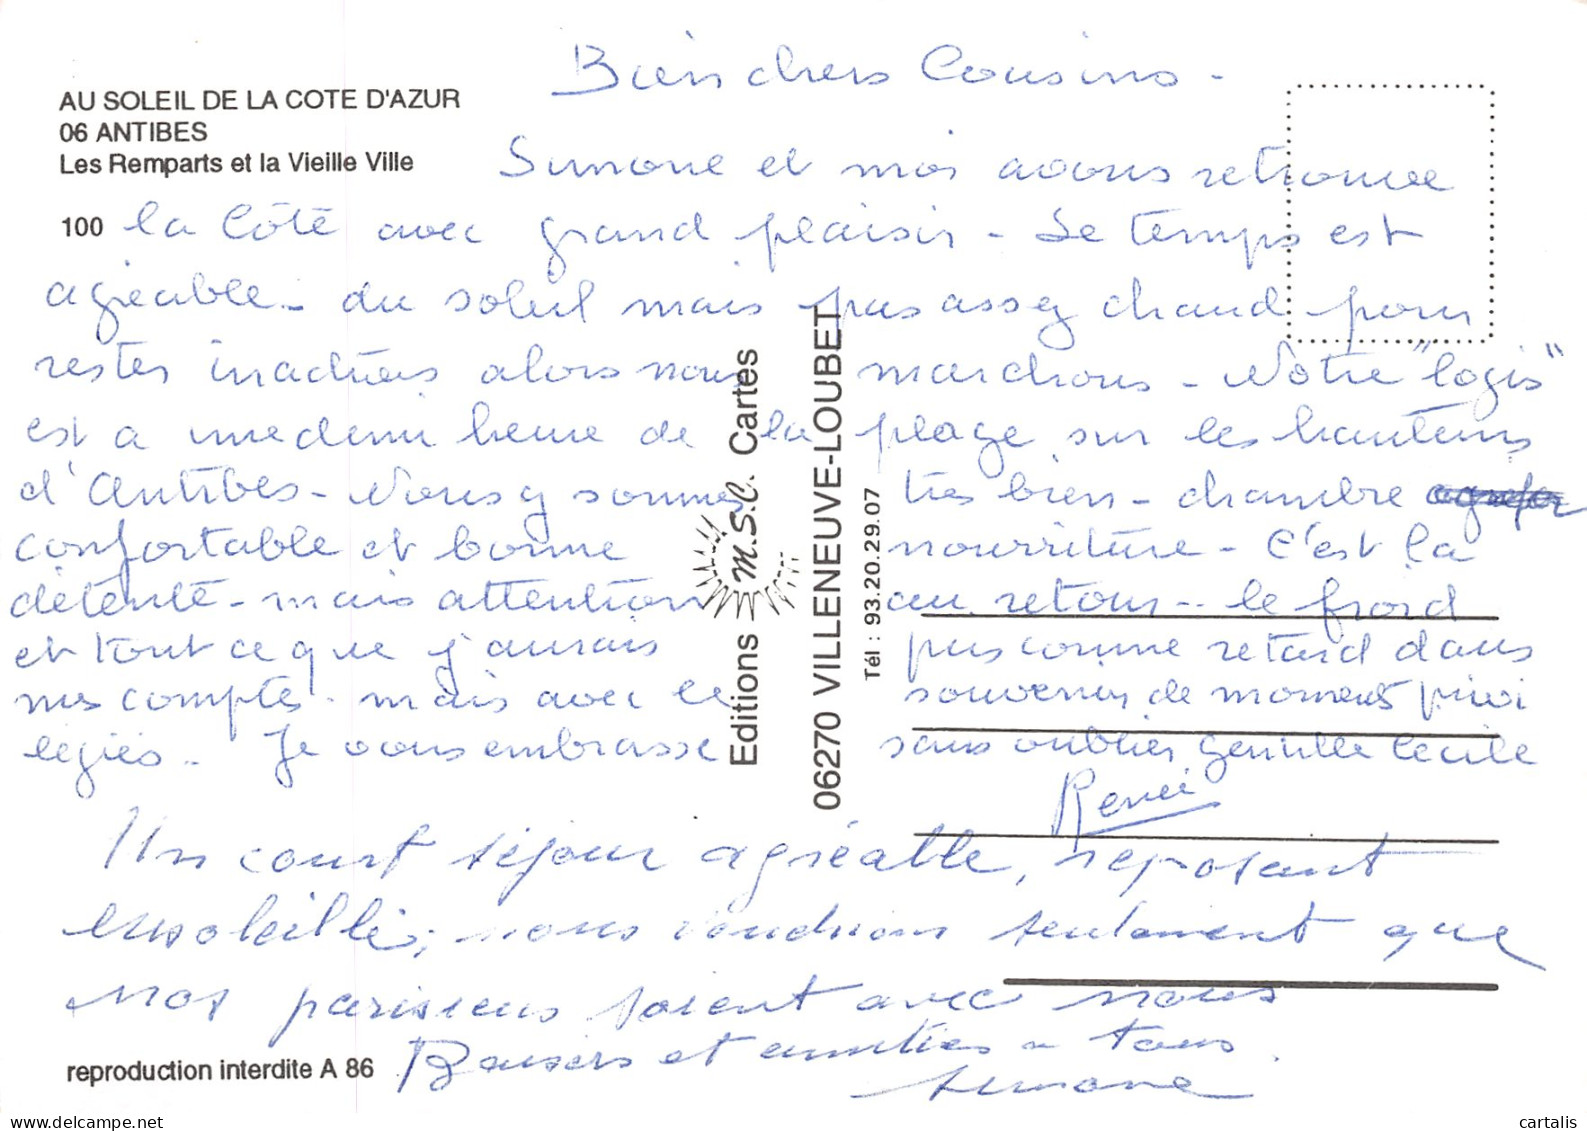 Bien chers Cousins -
AU SOLEIL DE LA COTE D'AZUR
06 ANTIBES
Les Remparts et la Vieille Ville
100
Simone et moi avons retrouvé
la Côte avec grand plaisir - Le temps est
agréable - du soleil mais pas assez chaud pour
rester inactives alors nous marchons - Notre "logis"
est a une demi heure de la plage sur les hauteurs
d'Antibes - Nous y sommes très bien - chambre
confortable et bonne nourriture - C'est la
détente - mais attention au retour - le froid
et tout ce que j'aurais pris comme retard dans
mes comptes - mais avec le souvenir de moments privi
legiés - Je vous embrasse sans oublier gentille Cecile
Renée
Un court séjour agréable, reposant
ensoleillé, nous voudrions seulement que
nos parisiens soient avec nous
Baisers et amitiés a tous.
Simone
Editions M.S.C. Cartes
06270 VILLENEUVE-LOUBET
Tél : 93.20.29.07
reproduction interdite A 86
cartalis